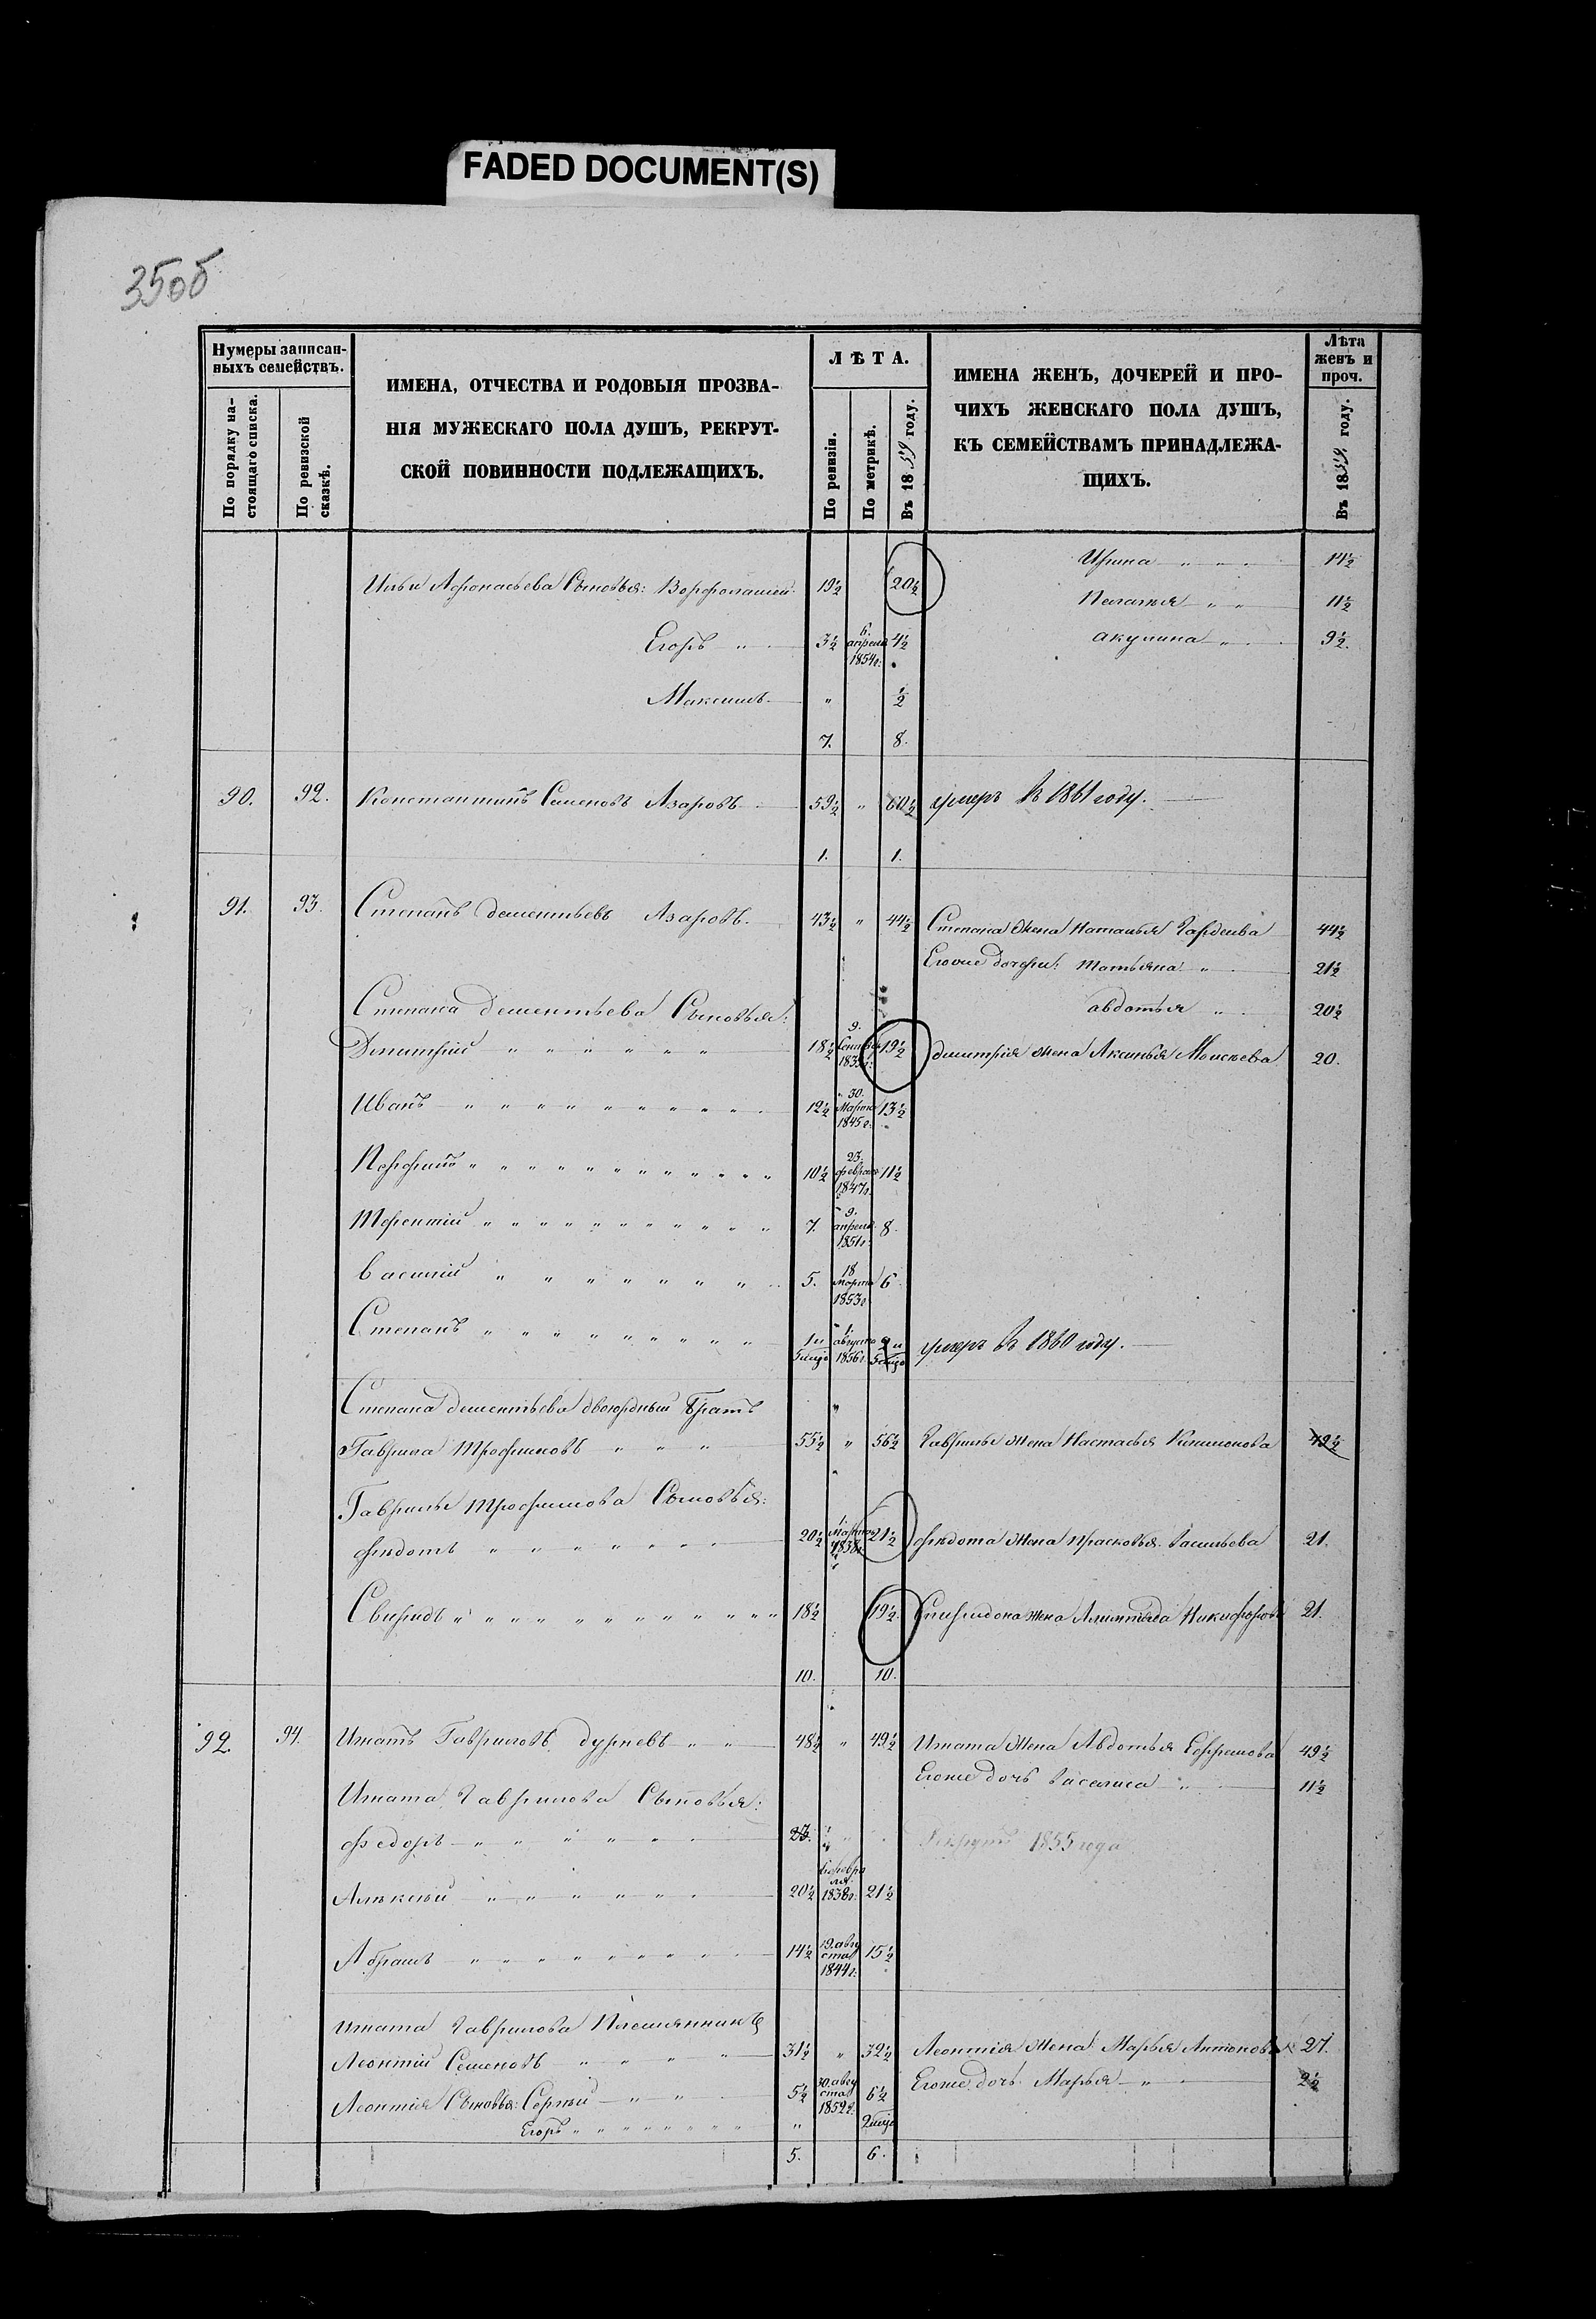 FADED DOCUMENT(S)
35об
Нумеры записан-
ныхъ семействъ.
По порядку на-
стоящаго списка.
По ревизской
сказкѣ.
ИМЕНА, ОТЧЕСТВА И РОДОВЫЯ ПРОЗВА-
НІЯ МУЖЕСКАГО ПОЛА ДУШЪ, РЕКРУТ-
СКОЙ ПОВИННОСТИ ПОДЛЕЖАЩИХЪ.
ЛѢТА.
По ревизіи.
По метрикѣ.
Въ 1859 году.
ИМЕНА ЖЕНЪ, ДОЧЕРЕЙ И ПРО-
ЧИХЪ ЖЕНСКАГО ПОЛА ДУШЪ,
КЪ СЕМЕЙСТВАМЪ ПРИНАДЛЕЖА-
ЩИХЪ.
Лѣта
женъ и
проч.
Въ 1859 году.
Ирина " " " 14½
Ильи Афонасьева Сыновья: Ворфоламей 19½ 20½
Пелагея " " 11½
Егоръ " 3½ 6. апреля 1854г: 4½ акулина " 9½.
Максимъ " ½
7. 8.
90. 92. Константинъ Семеновъ Азаровъ 59½ " 60½ умеръ въ 1861 году.
1. 1.
91. 93. Степанъ дементьевъ Азаровъ. 43½ " 44½ Степана жена Наталья 44½
Егоже дочери: Татьяна " 21½
Степана дементьева Сыновья: авдотья " 20½
Дмитрій " " " " " " 18½ 9. 19½ дмитрія жена Аксинья Моисеева 20.
Иванъ " " " " " " " " " " 12½ 30. Марта 1845г: 13½
Порфирій " " " " " " " " " " " 10½ 23. февраля 1847г. 11½
Терентій " " " " " " " " " " 7. 9. апреля 1851г: 8.
василій " " " " " " " 5. 18 Марта 1853г. 6.
Степанъ " " " " " " " " " 1 и 5 мцъ 1. августа 1856г. 2 и 5 мцъ умеръ въ 1860 году.
Степана дементьева двоюрдный братъ
Гаврила Трофимовъ " " " 55½ " 56½ Гаврилы жена Настасья 49½
Гаврилы Трофимова Сыновья:
федотъ " " " " " " 20½ 1. Марта 1838г. 21½ федота жена прасковья Васильева 21.
Свиридъ " " " " " " " " " " " " 18½ 19½ Спиридона жена 21.
10. 10.
92. 94. Игнатъ Гавриловъ дурневъ " " 48½ " 49½ Игната жена Авдотья Ефремова 49½
Егоже дочь Василиса " 11½
Игната Гаврилова Сыновья:
федоръ " " " " " 23. " 1855 года
Алексей " " " " " " 20½ февраля 1838г: 21½
Абрамъ " " " " " " " " 14½ 19. августа 1844г: 15½
Игната Гаврилова Племянникъ
Леонтій Семеновъ " " " " 31½ " 32½ Леонтія жена Марья Антонова 27.
Леонтія Сыновья: Сергей " " 5½ 30. августа 1852г. 6½ Егоже дочь Марья " 2½
Егоръ " " " " " " " " " 2 мцъ
5. 6.